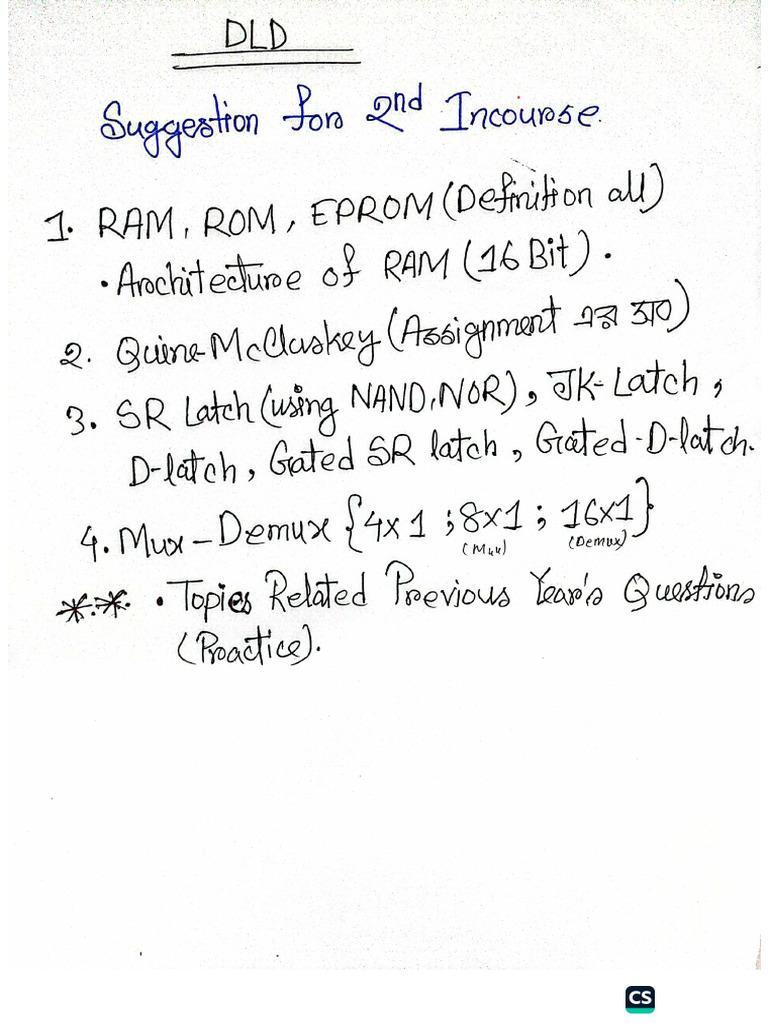 DLD
Suggestion for 2nd Incourse.
1. RAM, ROM, EPROM (Definition all)
• Architecture of RAM (16 Bit).
2. Quine-McCluskey (Assignment এর মত)
3. SR Latch (using NAND, NOR), JK-Latch,
D-latch, Gated SR latch, Gated-D-latch.
4. Mux-Demux {4x1 ; 8x1 ; 16x1}
(Mux) (Demux)
**. • Topics Related Previous Year's Questions
(Practice).
CS